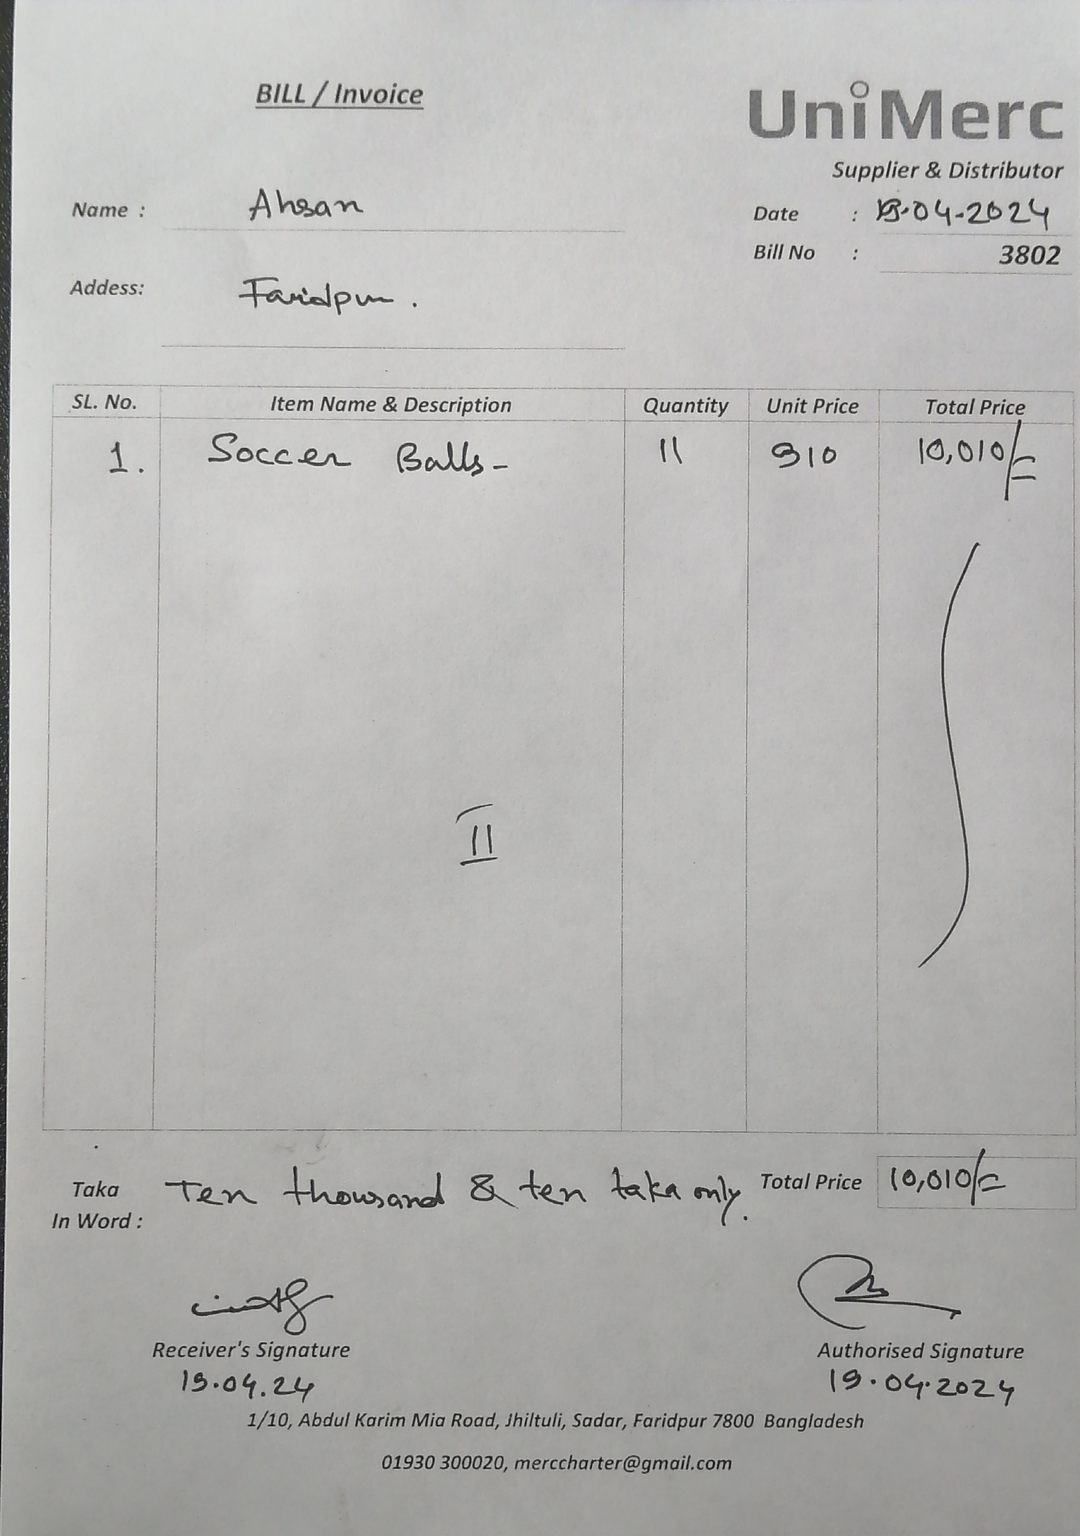 BILL / Invoice
UniMerc
Supplier & Distributor
Name : Ahsan
Date : 19.04.2024
Bill No : 3802
Addess: Faridpur.
SL. No. Item Name & Description Quantity Unit Price Total Price
1. Soccer Balls- 11 910 10,010/=
11
Taka In Word : Ten thousand & ten taka only.
Total Price 10,010/=
Receiver's Signature
19.04.24
Authorised Signature
19.04.2024
1/10, Abdul Karim Mia Road, Jhiltuli, Sadar, Faridpur 7800 Bangladesh
01930 300020, merccharter@gmail.com